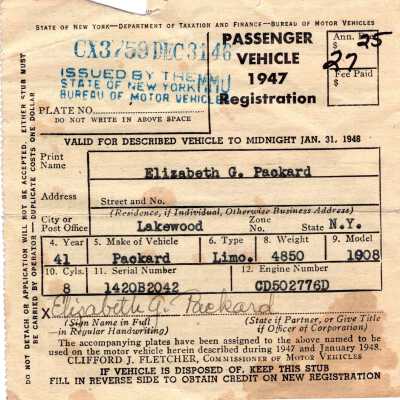 STATE OF NEW YORK—DEPARTMENT OF TAXATION AND FINANCE—BUREAU OF MOTOR VEHICLES
CX3759 DEC 31 46
ISSUED BY THE
STATE OF NEW YORK
BUREAU OF MOTOR VEHICLES
PLATE NO.
DO NOT WRITE IN ABOVE SPACE
PASSENGER
VEHICLE
1947
Registration
Ann.
27 25
Fee Paid
$
VALID FOR DESCRIBED VEHICLE TO MIDNIGHT JAN. 31, 1948
Print Name Elizabeth G. Packard
Address
Street and No.
(Residence, if Individual, Otherwise Business Address)
City or Post Office Lakewood Zone No. State N.Y.
4. Year 5. Make of Vehicle 6. Type 8. Weight 9. Model
41 Packard Limo. 4850 1908
10. Cyls. 11. Serial Number 12. Engine Number
8 1420B2042 CD502776D
X Elizabeth G. Packard
(Sign Name in Full in Regular Handwriting) (State if Partner, or Give Title if Officer of Corporation)
The accompanying plates have been assigned to the above named to be
used on the motor vehicle herein described during 1947 and January 1948.
CLIFFORD J. FLETCHER, COMMISSIONER OF MOTOR VEHICLES
IF VEHICLE IS DISPOSED OF, KEEP THIS STUB
FILL IN REVERSE SIDE TO OBTAIN CREDIT ON NEW REGISTRATION
DO NOT DETACH OR APPLICATION WILL NOT BE ACCEPTED. EITHER STUB MUST
BE CARRIED BY OPERATOR — DUPLICATE COSTS ONE DOLLAR